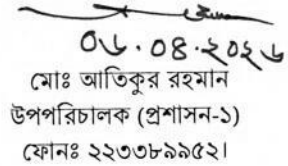 ০৬.০৪.২০২৬
মোঃ আতিকুর রহমান
উপপরিচালক (প্রশাসন-১)
ফোনঃ ২২৩৩৮৯৯৫২।